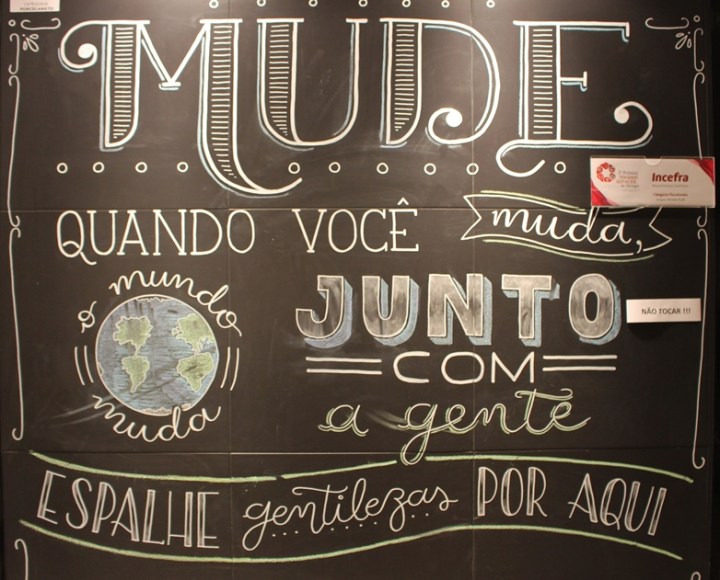 MUDE
QUANDO VOCÊ muda,
o mundo
muda
JUNTO
COM
a gente
ESPALHE gentilezas POR AQUI
Incefra
NÃO TOCAR !!!